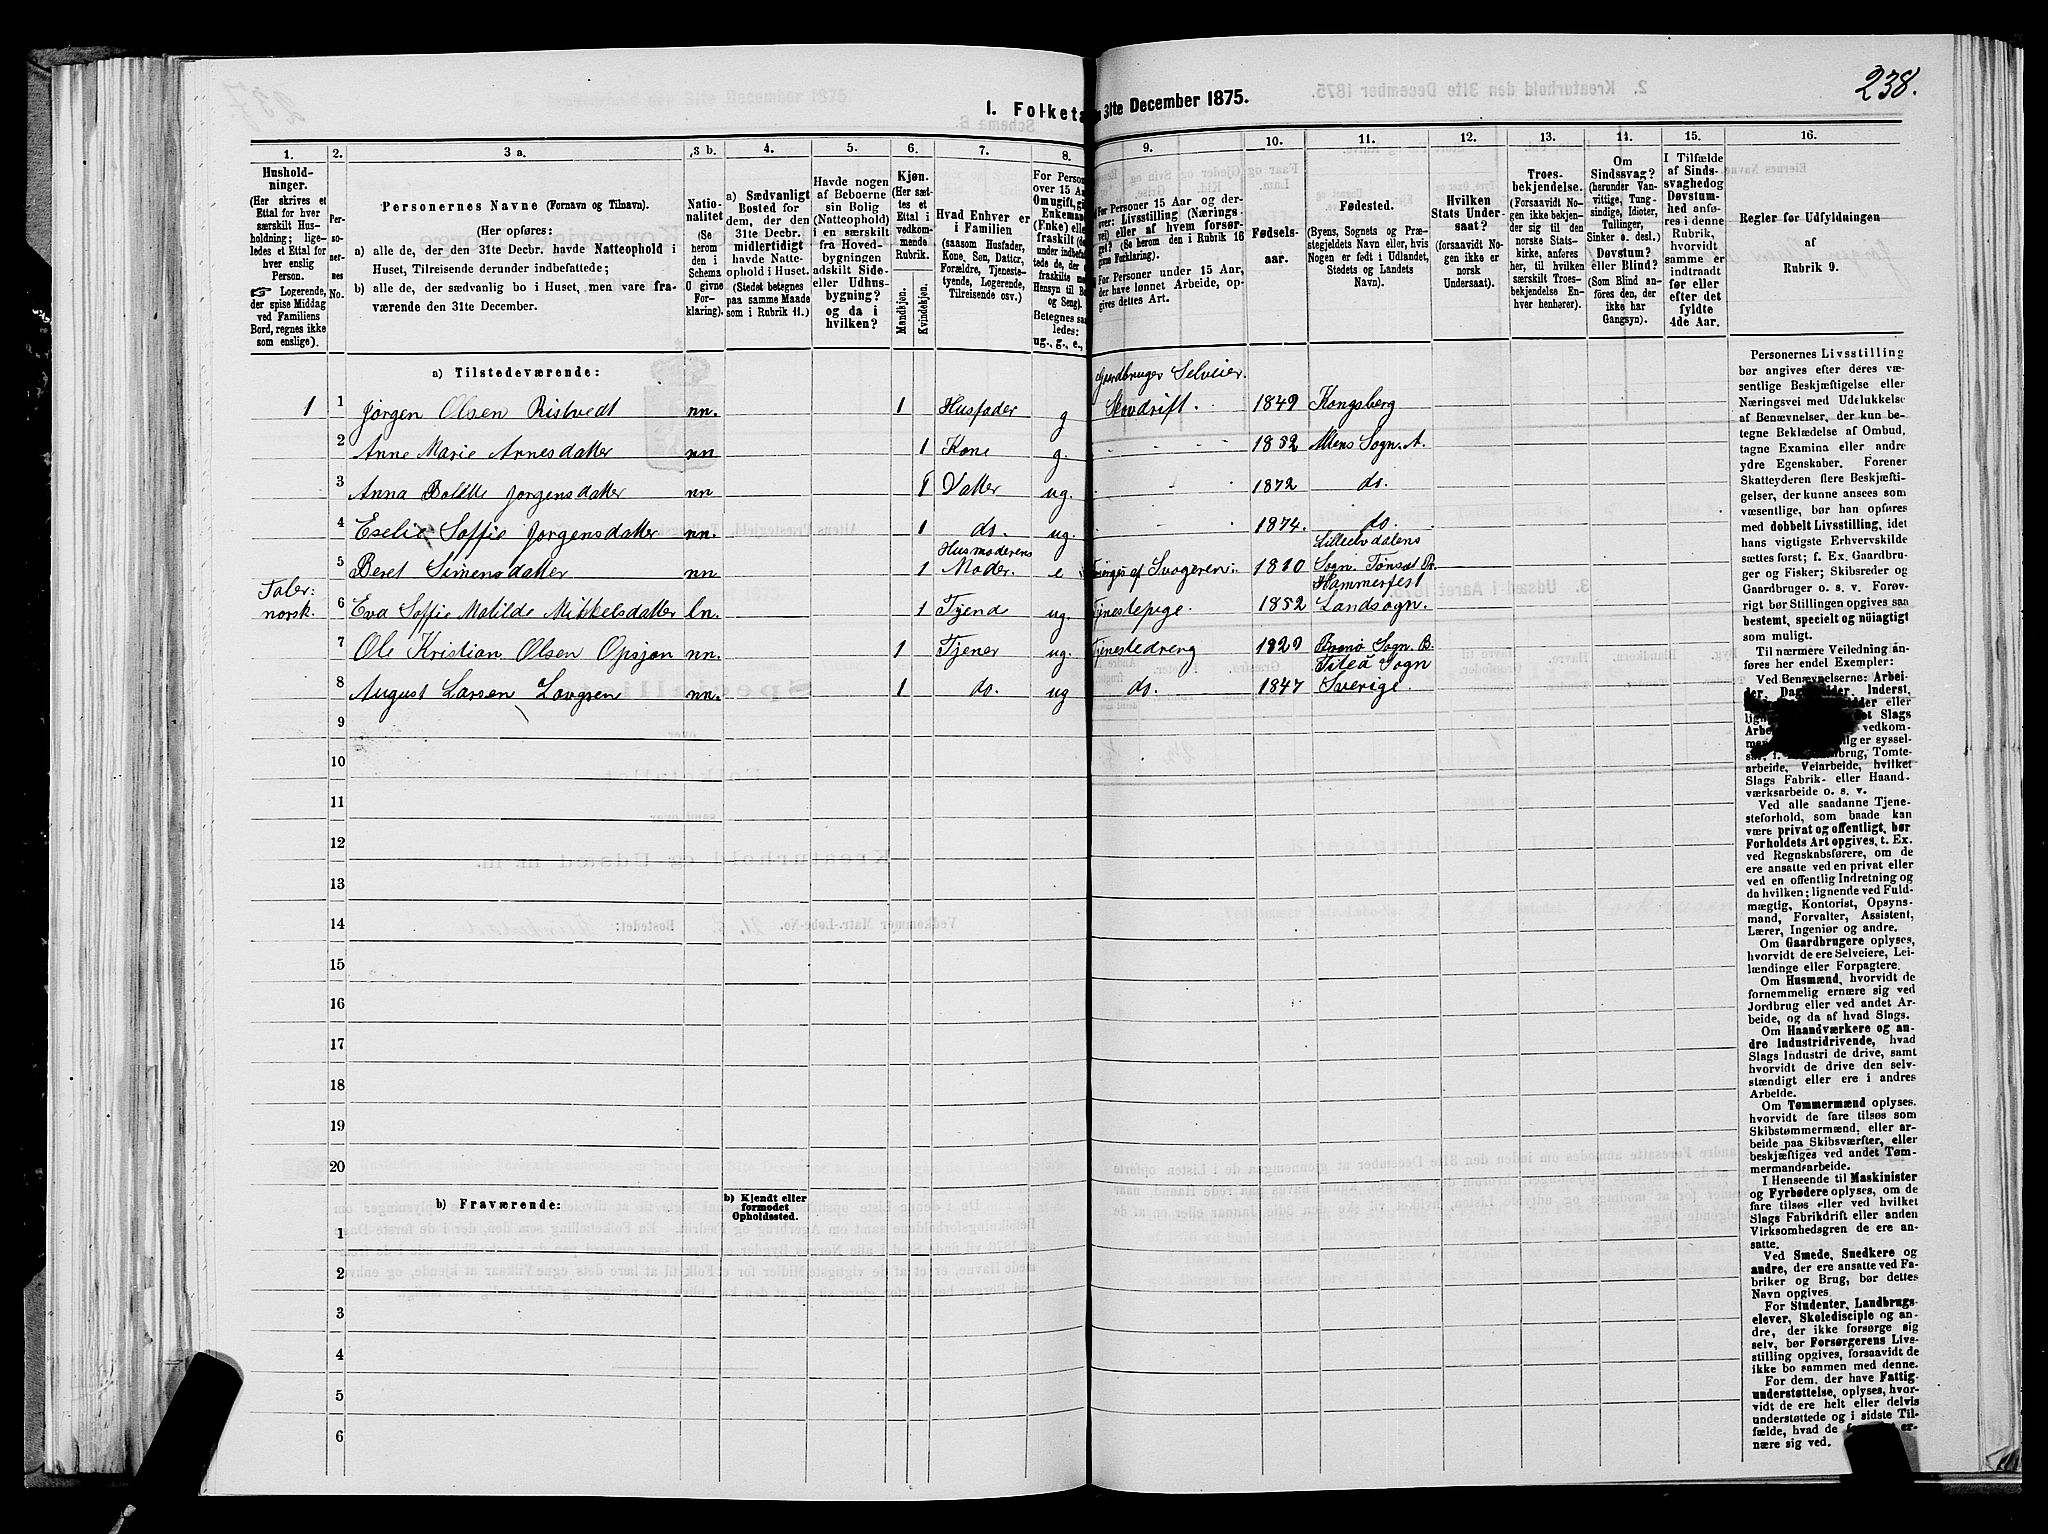 238.
I. Folketa 31te December 1875.
1. 2. 3 a. 3 b. 4. 5. 6. 7. 8. 9. 10. 11. 12. 13. 14. 15. 16.
Hushold-
ninger.
(Her skrives et
Ettal for hver
særskilt Hus-
holdning; lige-
ledes et Ettal for
hver enslig
Person.
Logerende,
der spise Middag
ved Familiens
Bord, regnes ikke
som enslige).
Per-
so-
ner-
nes
No.
Personernes Navne (Fornavn og Tilnavn).
(Her opføres:
a) alle de, der den 31te Decbr. havde Natteophold i
Huset, Tilreisende derunder indbefattede;
b) alle de, der sædvanlig bo i Huset, men vare fra-
værende den 31te December.
Natio-
nalitet
(Se
herom
den i
Schema
O givne
For-
klaring).
a) Sædvanligt
Bosted for
dem, der den
31te Decbr.
midlertidigt
havde Natte-
ophold i Huset.
(Stedet betegnes
paa samme Maade
som i Rubrik 11.)
Havde nogen
af Beboerne
sin Bolig
(Natteophold)
i en særskilt
fra Hoved-
bygningen
adskilt Side-
eller Udhus-
bygning?
og da i
hvilken?
Kjøn.
(Her sæt-
tes et
Ettal i
vedkom-
mende
Rubrik.
Mandkjøn.
Kvindekjøn.
Hvad Enhver er
i Familien
(saasom Husfader,
Kone, Søn, Datter,
Forældre, Tjeneste-
tyende, Logerende,
Tilreisende osv.)
For Person
over 15 Aa
Om ugift, gi
Enkemand
(Enke) ell
fraskilt (d
under indbefa
fraskilte m
Hensyn til B
og Seng).
Betegnes saa
ledes:
ug., g., e.,
For Personer 15 Aar og der-
over: Livsstilling (Nærings-
vei) eller af hvem forsør-
get? (Se herom den i Rubrik 16
givne Forklaring).
For Personer under 15 Aar,
der have lønnet Arbeide, op-
gives dettes Art.
Fødsels-
aar.
Fødested.
(Byens, Sognets og Præ-
stegjeldets Navn eller, hvis
Nogen er født i Udlandet,
Stedets og Landets
Navn).
Hvilken
Stats Under-
saat?
(forsaavidt No-
gen ikke er
norsk
Undersaat).
Troes-
bekjendelse.
(Forsaavidt No-
gen ikke bekjen-
der sig til den
norske Stats-
kirke, anføres
her, til hvilken
særskilt Troes-
bekjendelse En-
hver henhører).
Om
Sindssvag?
(herunder Van-
vittige, Tung-
sindige, Idioter,
Tullinger,
Sinker o. desl.)
Døvstum?
eller Blind?
(Som Blind an-
føres den, der
ikke har
Gangsyn).
I Tilfælde
af Sinds-
svaghed og
Døvstum-
hed anfø-
res i denne
Rubrik,
hvorvidt
samme er
indtraadt
før eller
efter det
fyldte
4de Aar.
Regler for Udfyldningen
af
Rubrik 9.
a) Tilstedeværende:
Gaardbruger Selveier.
1 1 Jørgen Olsen Ristvedt nn. 1 Husfader g Skovdrift. 1849 Kongsberg
2 Anne Marie Arnesdatter nn 1 Kone g. 1852 Altens Sogn. A.
3 Anna Bolette Jørgensdatter nn 1 Datter ug. 1872 do.
4 Eselie Soffie Jørgensdatter nn. 1 do. ug. 1874. do.
Husmoderens Lilleelvdalens
5 Beret Simensdatter nn 1 Moder. e Forsørges af Svogeren. 1810 Sogn. Tønsæt Pr.
Taler: Hammerfest
norsk. 6 Eva Soffie Matilde Mikkelsdatter ln. 1 Tjende ug. Tjenestepige. 1852 Landsogn.
7 Ole Kristian Olsen Opsjøn nn. 1 Tjener ug. Tjenestedreng 1820 Brønø Sogn. B.
Titeø Sogn
8 August Larsen Lovgren nn. 1 do. ug do. 1847 Sverige.
9
10
11
12
13
14
15
16
17
18
19
20
b) Fraværende: b) Kjendt eller
formodet
Opholdssted.
1
2
3
4
5
6
Personernes Livsstilling
bør angives efter deres væ-
sentlige Beskjæftigelse eller
Næringsvei med Udelukkelse
af Benævnelser, der kun be-
tegne Beklædelse af Ombud,
tagne Examina eller andre
ydre Egenskaber. Forener
Skatteyderen flere Beskjæfti-
gelser, der kunne ansees som
væsentlige, bør han opføres
med dobbelt Livsstilling, idet
hans vigtigste Erhvervskilde
sættes først; f. Ex. Gaardbru-
ger og Fisker; Skibsreder og
Gaardbruger o. s. v. Forøv-
rigt bør Stillingen opgives saa
bestemt, specielt og nøiagtigt
som muligt.
Til nærmere Veiledning an-
føres her endel Exempler:
Ved Benævnelserne: Arbei-
der, Dag Inderst,
eller
Slags
Arbe vedkom-
men er syssel-
sat, f. brug, Tomte-
arbeide, Veiarbeide, hvilket
Slags Fabrik- eller Haand-
værksarbeide o. s. v.
Ved alle saadanne Tjene-
steforhold, som baade kan
være privat og offentligt, bør
Forholdets Art opgives, t. Ex.
ved Regnskabsførere, om de
ere ansatte ved en privat eller
ved en offentlig Indretning og
da hvilken; lignende ved Fuld-
mægtig, Kontorist, Opsyns-
mand, Forvalter, Assistent,
Lærer, Ingeniør og andre.
Om Gaardbrugere oplyses,
hvorvidt de ere Selveiere, Lei-
lændinge eller Forpagtere.
Om Husmænd, hvorvidt de
fornemmelig ernære sig ved
Jordbrug eller ved andet Ar-
beide, og da af hvad Slags.
Om Haandværkere og an-
dre Industridrivende, hvad
Slags Industri de drive, samt
hvorvidt de drive den selv-
stændigt eller ere i andres
Arbeide.
Om Tømmermænd oplyses,
hvorvidt de fare tilsøs som
Skibstømmermænd, eller ar-
beide paa Skibsværfter, eller
beskjæftiges ved andet Tøm-
mermandsarbeide.
I Henseende til Maskinister
og Fyrbødere oplyses, om de
fare tilsøs eller ved hvilket
Slags Fabrikdrift eller anden
Virksomhedsgren de ere an-
satte.
Ved Smede, Snedkere og
andre, der ere ansatte ved Fa-
briker og Brug, bør dettes
Navn opgives.
For Studenter, Landbrugs-
elever, Skoledisciple og an-
dre, der ikke forsørge sig
selv, bør Forsørgerens Livs-
stilling opgives, forsaavidt de
ikke bo sammen med denne.
For dem, der have Fattig-
understøttelse, oplyses, hvor-
vidt de ere helt eller delvis
understøttede og i sidste Til-
fælde, hvad de er-
nære sig ved.